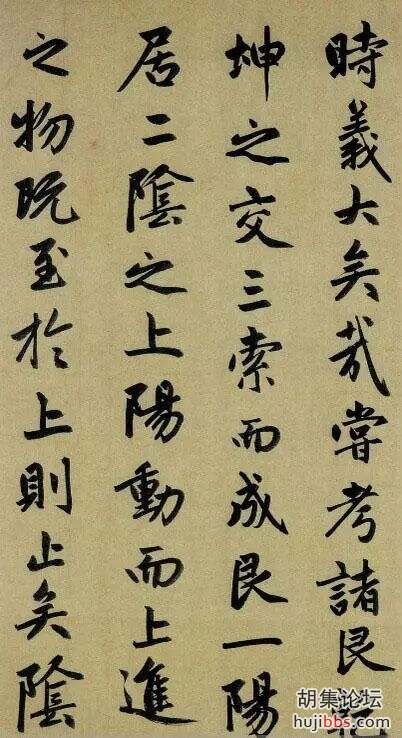 時義大矣哉嘗考諸艮乾
坤之交三索而成艮一陽
居二陰之上陽動而上進
之物既至於上則止矣陰
胡集论坛
hujibbs.com